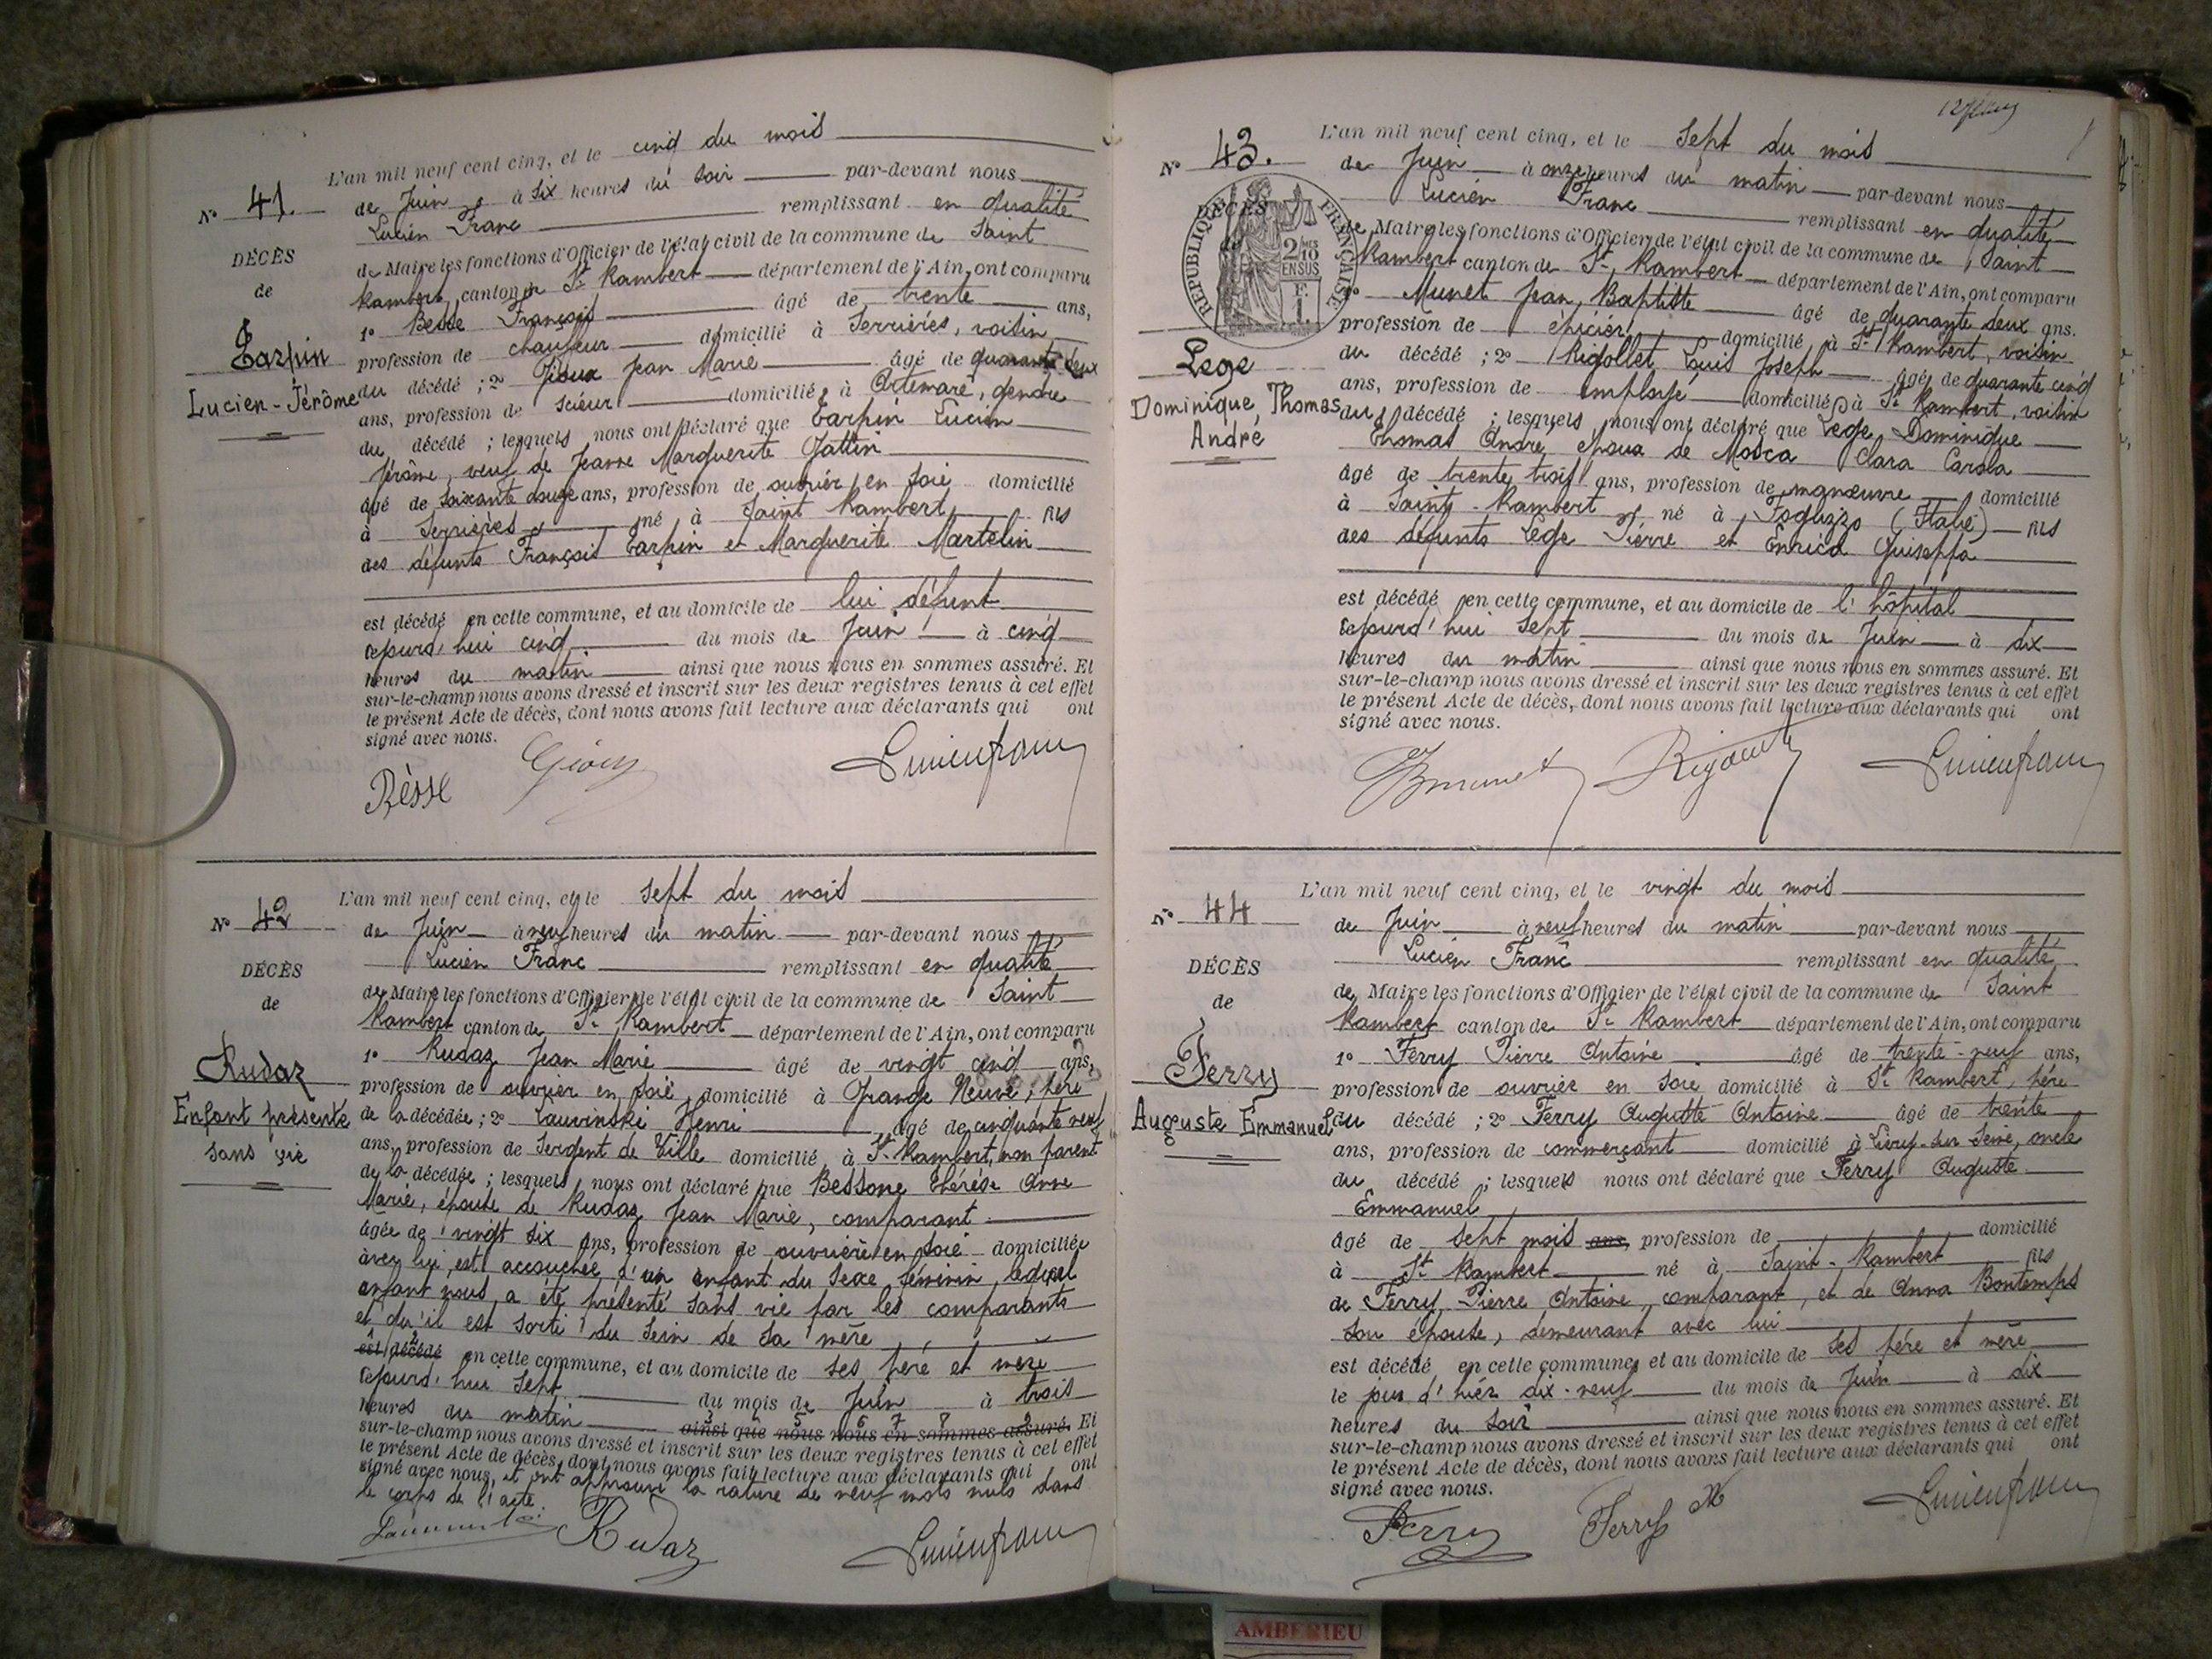 N° 41.
DÉCÈS
de
Tarpin
Lucien-Jérôme
L'an mil neuf cent cinq, et le cinq du mois
de Juin à six heures du soir par-devant nous
Lucien Franc remplissant en qualité
de Maire les fonctions d'Officier de l'état civil de la commune de Saint
Rambert, canton de St Rambert département de l'Ain, ont comparu
1° Besse François âgé de trente ans,
profession de chauffeur domicilié à Serrières, voisin
du décédé ; 2° Jean Marie âgé de quarante deux
ans, profession de scieur domicilié à Artemare, gendre
du décédé ; lesquels nous ont déclaré que Tarpin Lucien
Jérôme, veuf de Jeanne Marguerite Gattin
âgé de soixante douze ans, profession de ouvrier en soie domicilié
à Serrières né à Saint Rambert fils
des défunts François Tarpin et Marguerite Martelin
est décédé en cette commune, et au domicile de lui défunt
cejourd'hui cinq du mois de Juin à cinq
heures du matin ainsi que nous nous en sommes assuré. Et
sur-le-champ nous avons dressé et inscrit sur les deux registres tenus à cet effet
le présent Acte de décès, dont nous avons fait lecture aux déclarants qui ont
signé avec nous.
Bèsse Lucienfranc
N° 42
DÉCÈS
de
Rudaz
Enfant présenté
sans vie
L'an mil neuf cent cinq, et le sept du mois
de Juin à neuf heures du matin par-devant nous
Lucien Franc remplissant en qualité
de Maire les fonctions d'Officier de l'état civil de la commune de Saint
Rambert canton de St Rambert département de l'Ain, ont comparu
1° Rudaz Jean Marie âgé de vingt cinq ans,
profession de ouvrier en soie domicilié à Grange Neuve, père
de la décédée ; 2° Lauvinski Henri âgé de cinquante neuf
ans, profession de Sergent de Ville domicilié à St Rambert, non parent
de la décédée ; lesquels nous ont déclaré que Bessone Thérèse Anne
Marie, épouse de Rudaz Jean Marie, comparant
âgée de vingt six ans, profession de ouvrière en soie domiciliée
avec lui, est accouchée d'un enfant du sexe féminin, lequel
enfant nous a été présenté sans vie par les comparants
et qu'il est sorti du sein de sa mère
est décédé en cette commune, et au domicile de ses père et mère
cejourd'hui sept du mois de Juin à trois
heures du matin ainsi que nous nous en sommes assuré. Et
sur-le-champ nous avons dressé et inscrit sur les deux registres tenus à cet effet
le présent Acte de décès, dont nous avons fait lecture aux déclarants qui ont
signé avec nous, et ont approuvé la rature de neuf mots nuls dans
le corps de l'acte.
Rudaz Lucienfranc
N° 43.
DÉCÈS
RÉPUBLIQUE FRANÇAISE
2/10 EN SUS
1F.
Lege
Dominique Thomas
André
L'an mil neuf cent cinq, et le Sept du mois
de Juin à onze heures du matin par-devant nous
Lucien Franc remplissant en qualité
de Maire les fonctions d'Officier de l'état civil de la commune de Saint
Rambert canton de St Rambert département de l'Ain, ont comparu
1° Munet Jean Baptiste âgé de quarante deux ans.
profession de épicier domicilié à St Rambert, voisin
du décédé ; 2° Rigollet Louis Joseph âgé de quarante cinq
ans, profession de employé domicilié à St Rambert, voisin
du décédé ; lesquels nous ont déclaré que Lege Dominique
Thomas André, époux de Mosca Clara Carola
âgé de trente trois ans, profession de manœuvre domicilié
à Saint-Rambert né à Foglizzo (Italie) fils
des défunts Lege Pierre et Enrico Guiseppa
est décédé en cette commune, et au domicile de l'hôpital
cejourd'hui Sept du mois de Juin à six
heures du matin ainsi que nous nous en sommes assuré. Et
sur-le-champ nous avons dressé et inscrit sur les deux registres tenus à cet effet
le présent Acte de décès, dont nous avons fait lecture aux déclarants qui ont
signé avec nous.
Lucienfranc
N° 44
DÉCÈS
de
Ferry
Auguste Emmanuel
L'an mil neuf cent cinq, et le vingt du mois
de Juin à neuf heures du matin par-devant nous
Lucien Franc remplissant en qualité
de Maire les fonctions d'Officier de l'état civil de la commune de Saint
Rambert canton de St Rambert département de l'Ain, ont comparu
1° Ferry Pierre Antoine âgé de trente-neuf ans,
profession de ouvrier en soie domicilié à St Rambert, père
du décédé ; 2° Ferry Auguste Antoine âgé de trente
ans, profession de commerçant domicilié à sur Seine, oncle
du décédé ; lesquels nous ont déclaré que Ferry Auguste
Emmanuel
âgé de sept mois ans, profession de domicilié
à St Rambert né à Saint-Rambert fils
de Ferry Pierre Antoine, comparant, et de Anna Bontemps
son épouse, demeurant avec lui
est décédé en cette commune et au domicile de ses père et mère
le jour d'hier dix-neuf du mois de Juin à dix
heures du soir ainsi que nous nous en sommes assuré. Et
sur-le-champ nous avons dressé et inscrit sur les deux registres tenus à cet effet
le présent Acte de décès, dont nous avons fait lecture aux déclarants qui ont
signé avec nous.
Ferry Ferry Lucienfranc
AMBERIEU